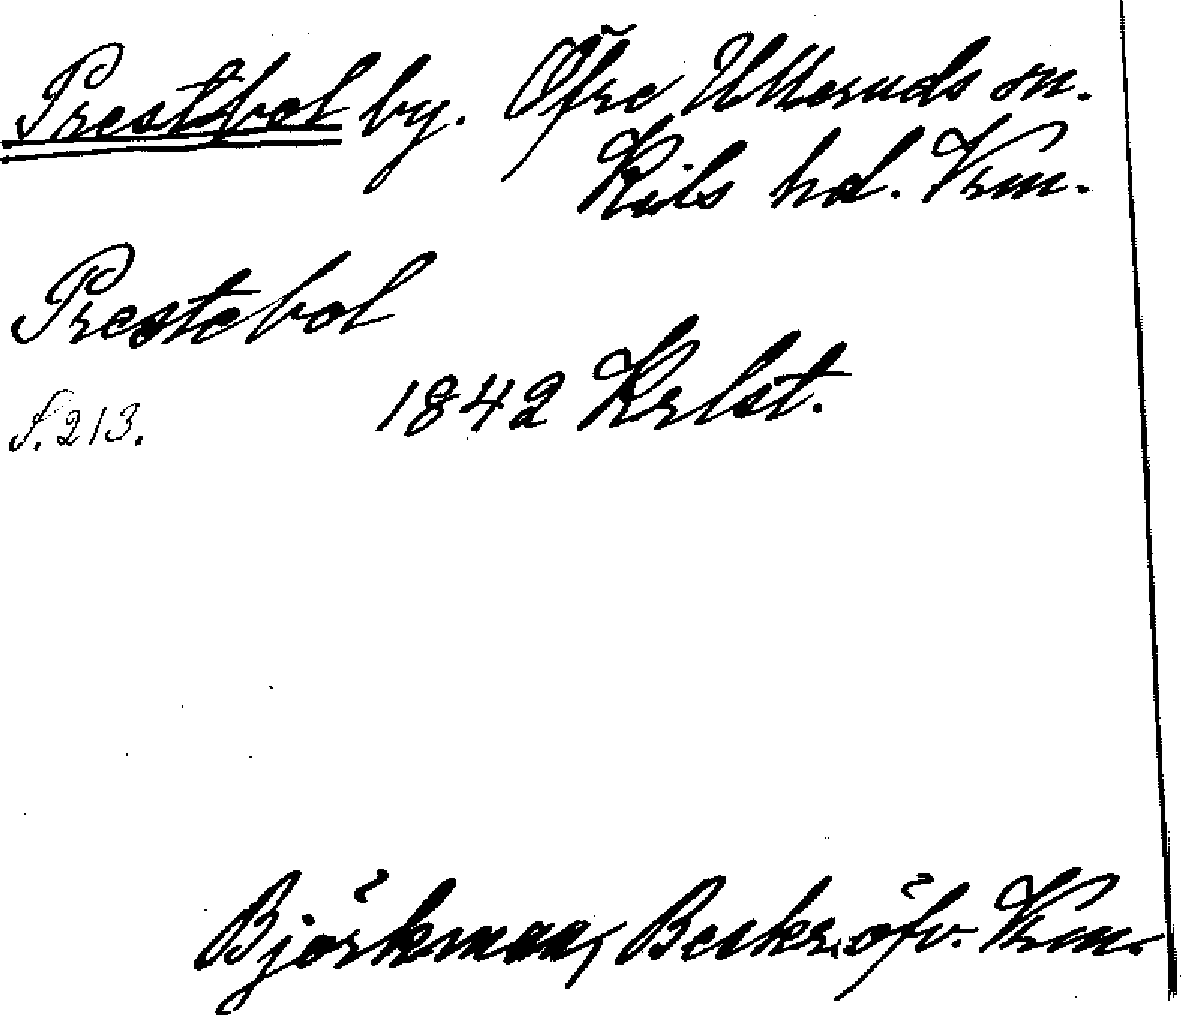 Prestbol by. Öfre Ulleruds sn.
Kils hd. Vrm.
Prestebol
1842 Krlst.
S. 213.
Björkman, Beskr. öfv. Vrm.